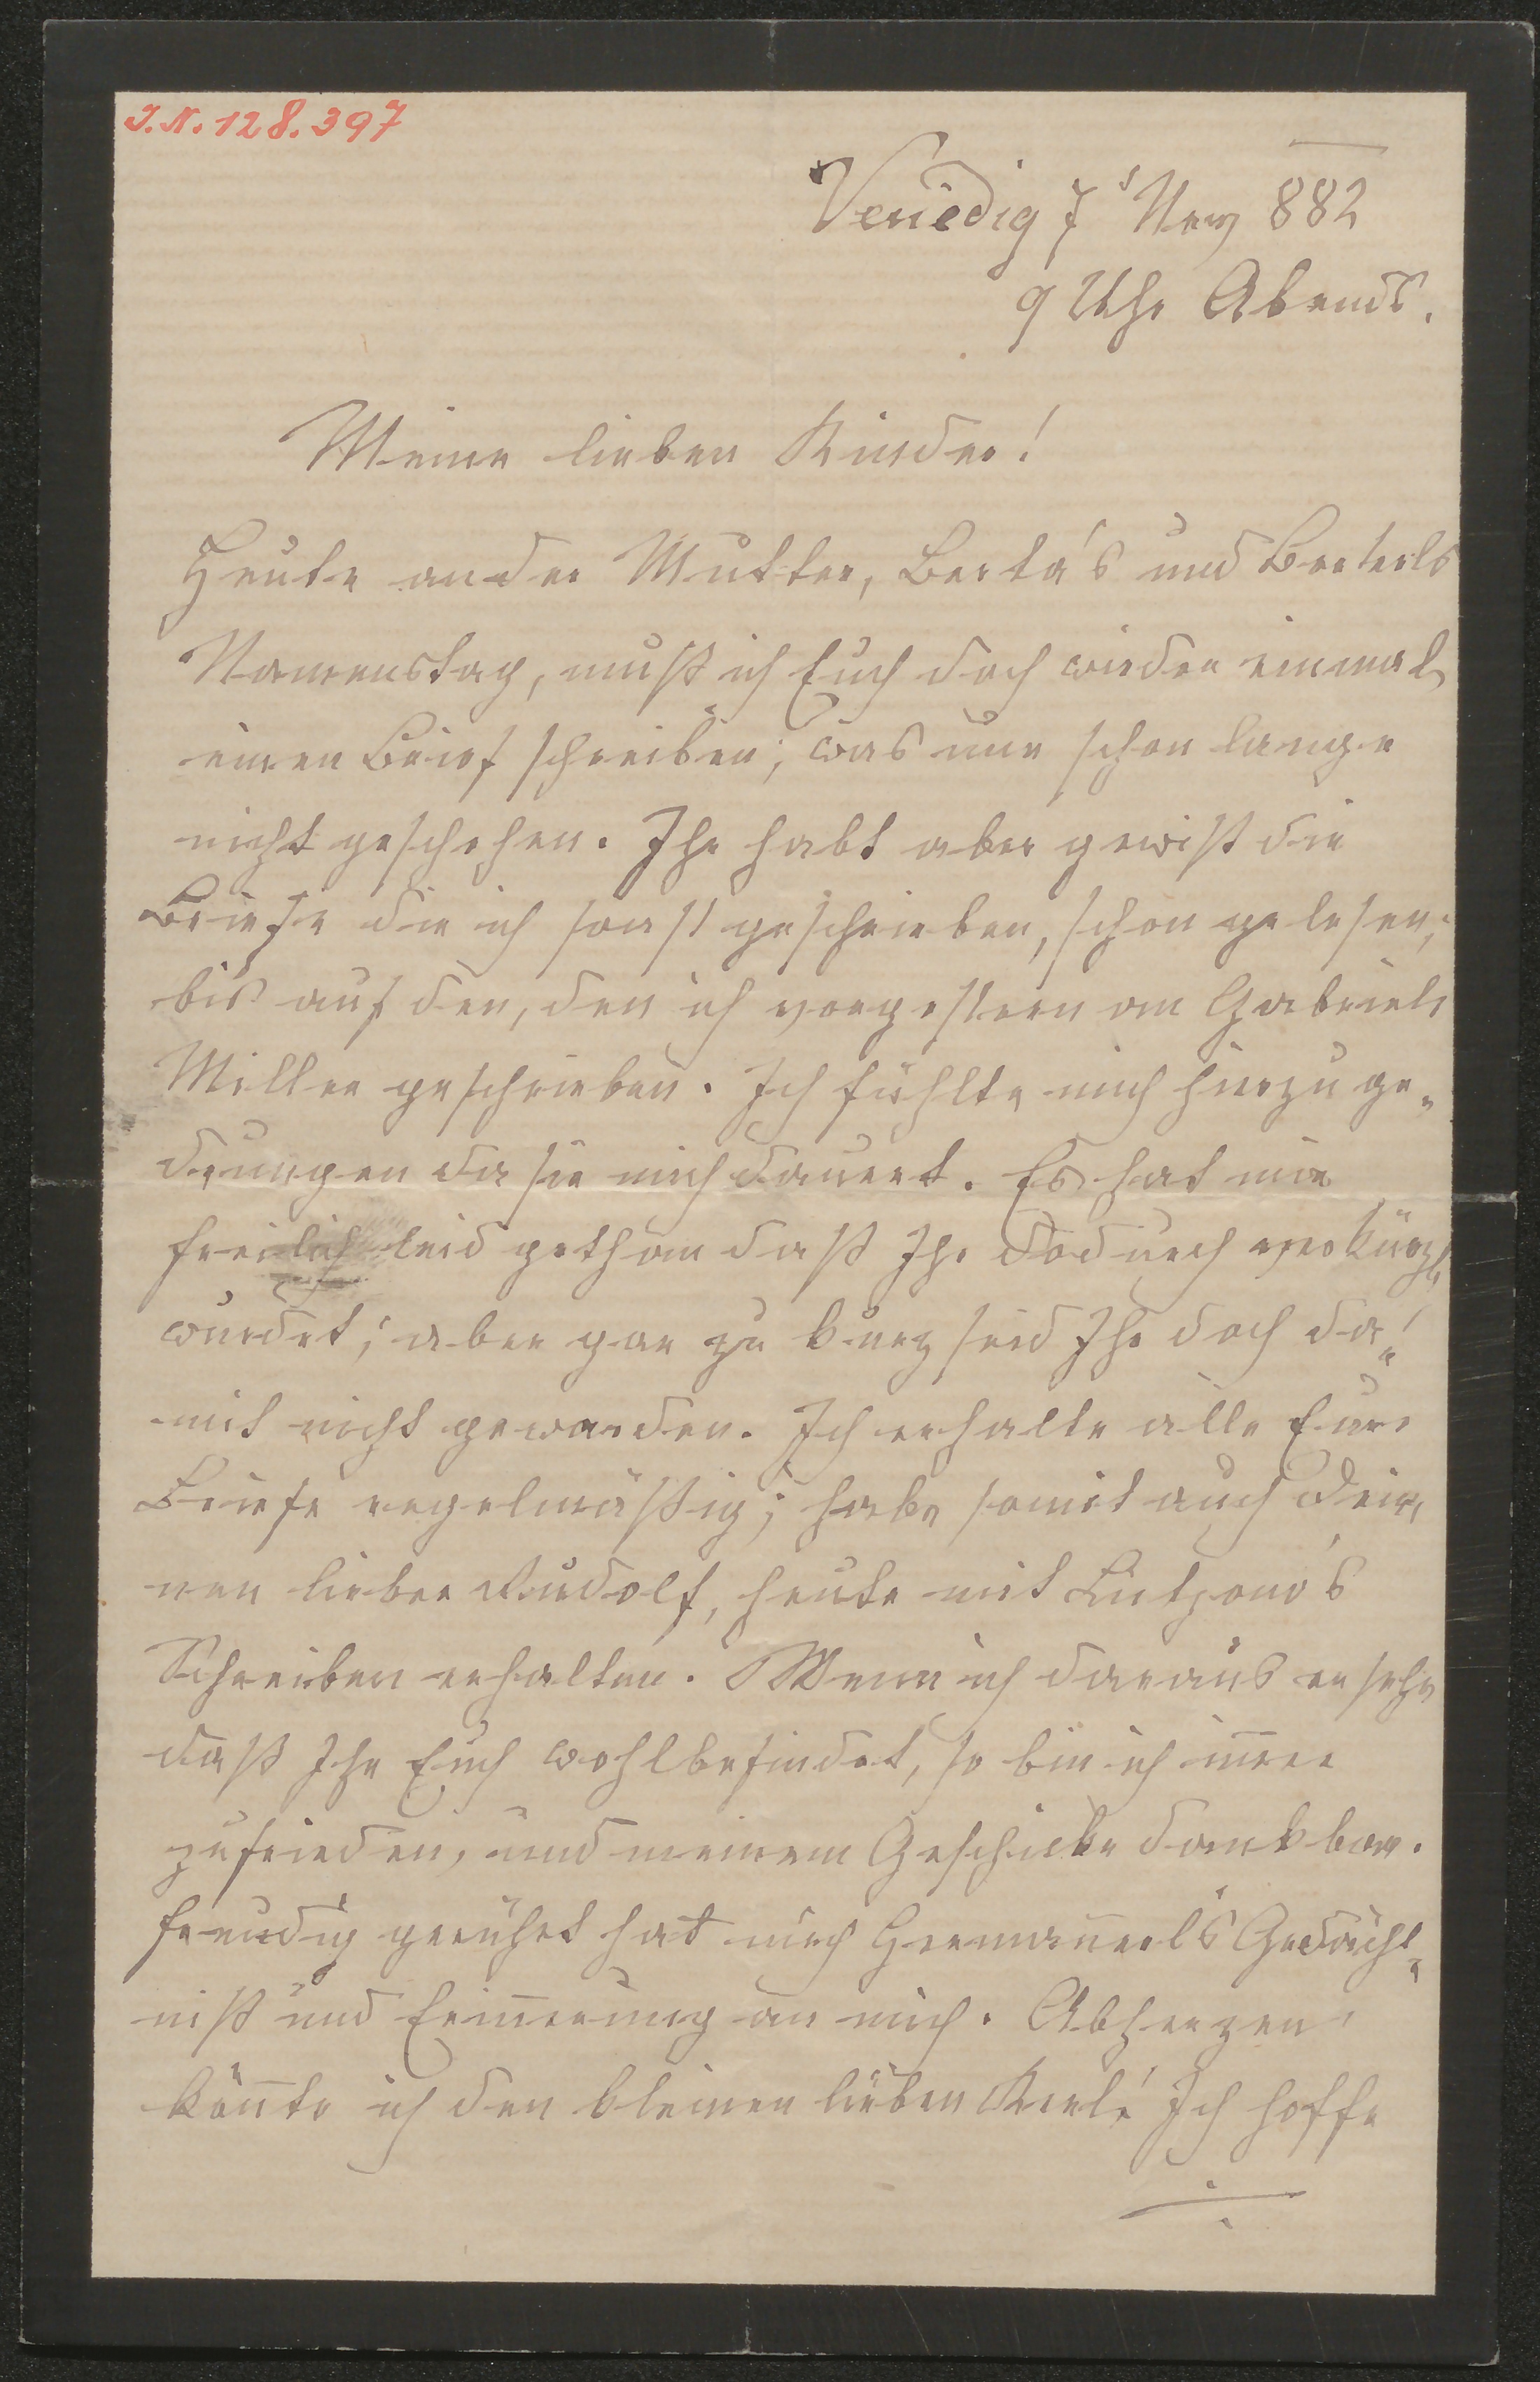 J.N. 128.397
Venedig 7t May 882
9 Uhr Abends.
Meine lieben Kinder!
Heute an der Mutter, Berta's und Berterls
Namenstag, muß ich Euch doch wieder einmal
einen Brief schreiben; was nun schon lange
nicht geschehen. Ihr habt aber gewiß die
Briefe die ich sonst geschrieben, schon gelesen;
bis auf den, den ich vorgestern an Gabriele
Miller geschrieben. Ich fühlte mich hierzu ge-
drungen da sie mich dauert. Es hat mir
freilich leid gethan daß Ihr dadurch verkürzt
wurdet; aber gar zu kurz seid Ihr doch da-
mit nicht geworden. Ich erhalte alle Eure
Briefe regelmäßig; habe somit auch Dei-
nen lieber Rudolf, heute mit Lützow's
Schreiben erhalten. Wenn ich daraus ersehe
daß Ihr Euch wohlbefindet, so bin ich im̄er
zufrieden, und meinem Geschicke dankbar.
Freudig gerührt hat mich Herman̄erl's Gedächt-
niß und Erin̄erung an mich. Abherzen
kön̄te ich den kleinen lieben Kerl! Ich hoffe